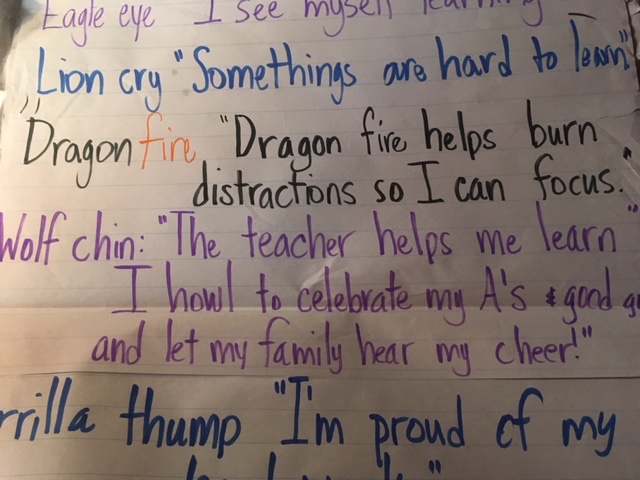 Eagle eye I see myself learning
Lion cry "Somethings are hard to learn"
"Dragon fire "Dragon fire helps burn
distractions so I can focus."
Wolf chin: "The teacher helps me learn"
I howl to celebrate my A's & good
and let my family hear my cheer!"
rrilla thump "I'm proud of my